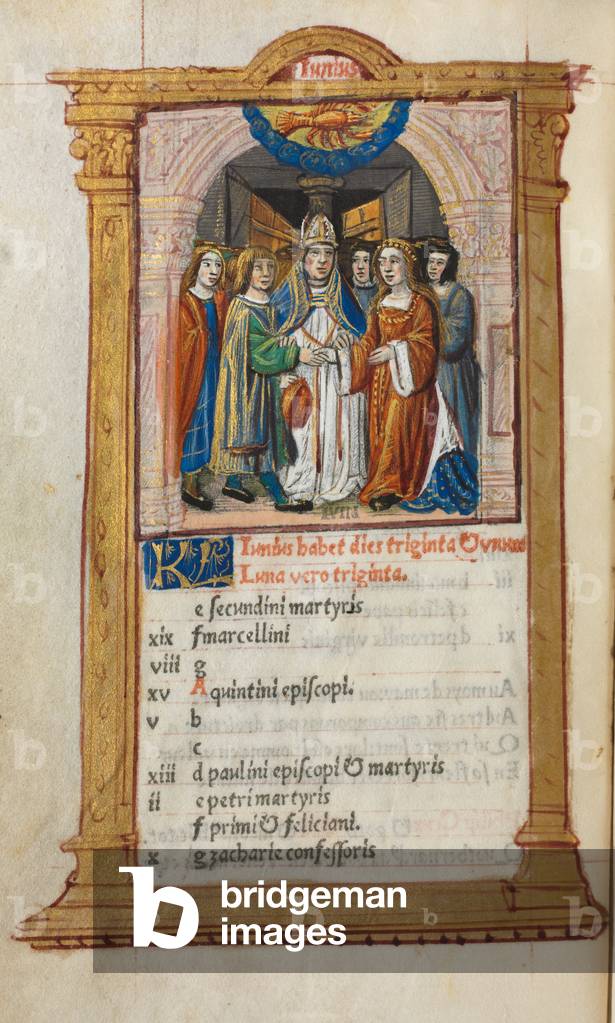 Iunius
KL Iunius habet dies triginta & vnum
Luna vero triginta.
e secundini martyris
xix f marcellini
viii g
xv A quintini episcopi.
v b
c
xiii d paulini episcopi & martyris
ii e petri martyris
f primi & feliciani.
x g zacharie confessoris
b bridgeman
images